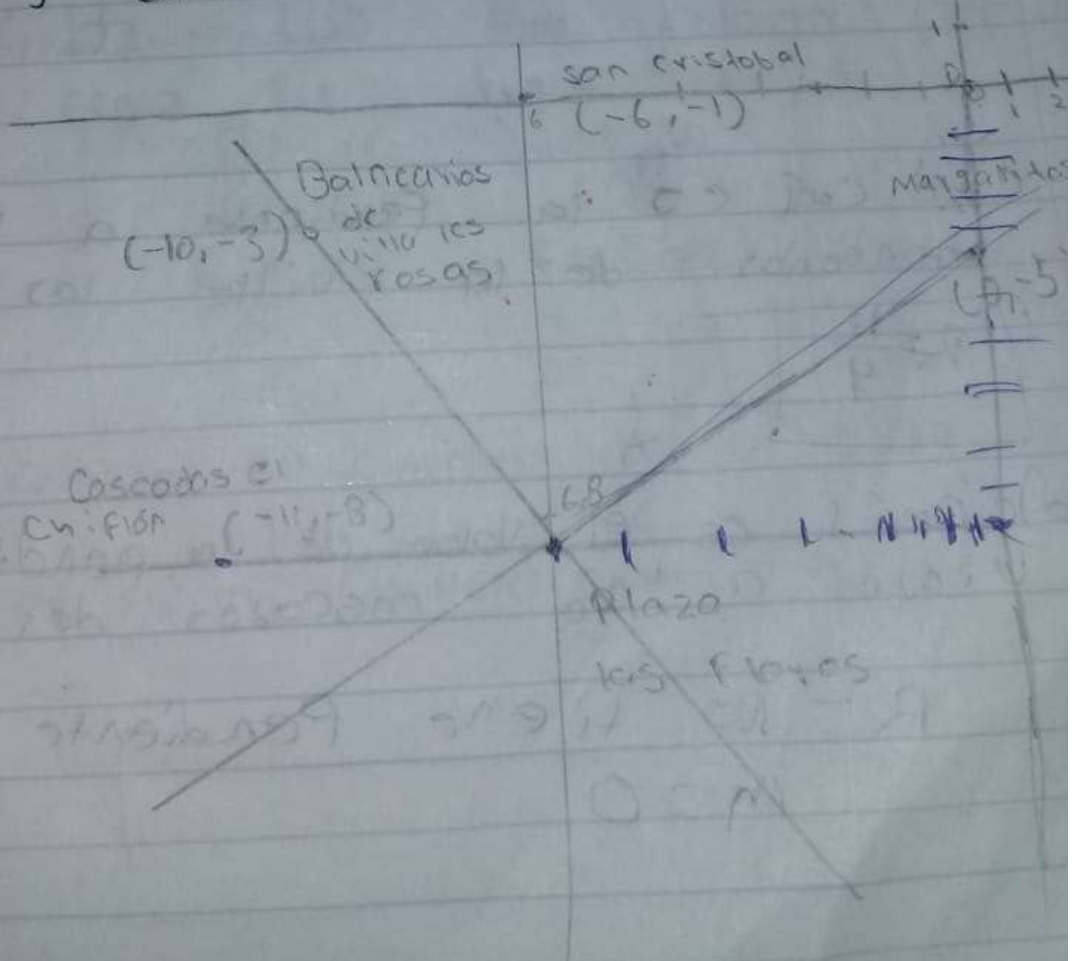 1
san cristobal
6 (-6,-1)
1 2
Balnearios
de
villa las
rosas
(-10,-3)
Margaritas
-5
Cascadas el
Chiflón (-11,-8)
Plaza
las Flores